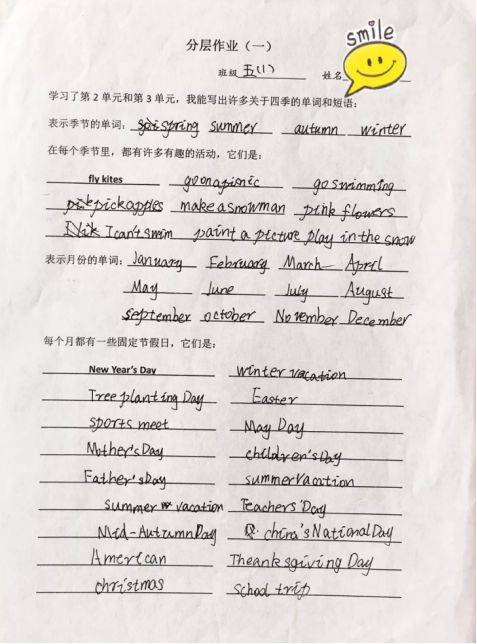 分层作业（一）
smile
班级 五(1) 姓名
学习了第 2 单元和第 3 单元，我能写出许多关于四季的单词和短语：
表示季节的单词： spring summer autumn winter
在每个季节里，都有许多有趣的活动，它们是：
fly kites go on a picnic go swimming
pick apples make a snowman pink flowers
I can't swim paint a picture play in the snow
表示月份的单词： January February March April
May June July August
September october November December
每个月都有一些固定节假日，它们是：
New Year's Day winter vacation
Tree planting Day Easter
sports meet May Day
Mother's Day children's Day
Father's Day summer vacation
summer vacation Teachers' Day
Mid-Autumn Day china's National Day
American Theanksgiving Day
christmas school trip